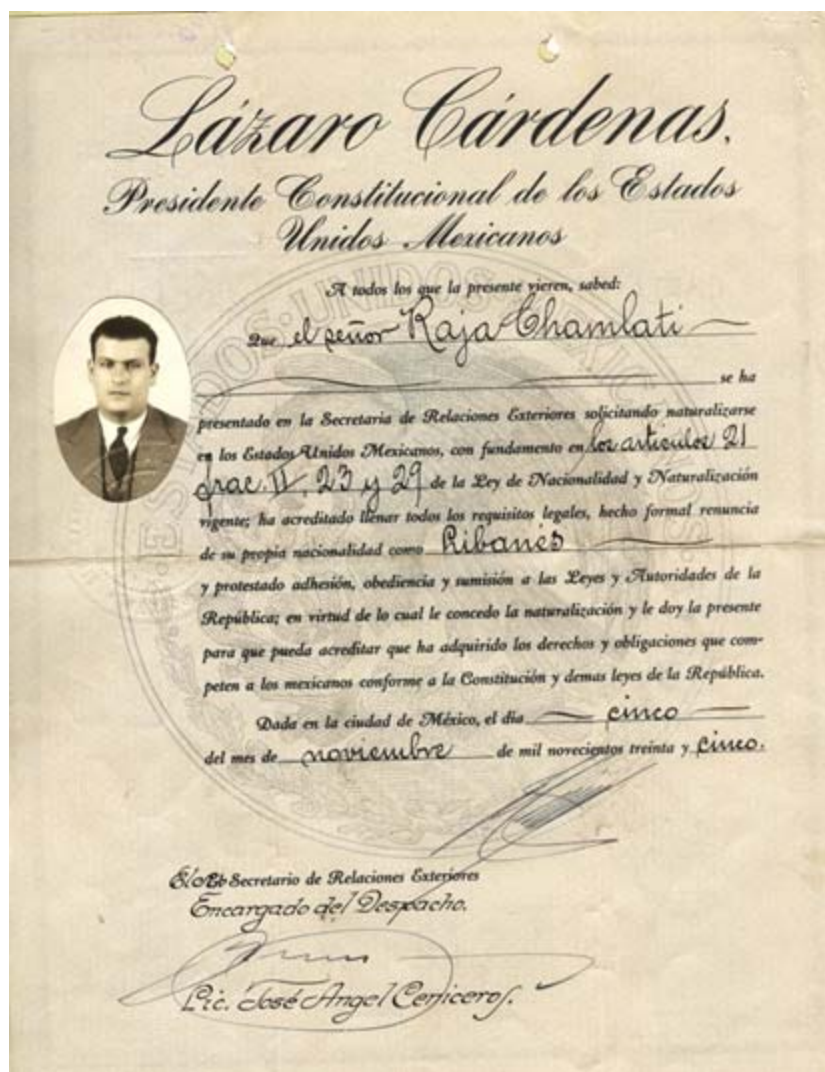 Lázaro Cárdenas.
Presidente Constitucional de los Estados
Unidos Mexicanos
A todos los que la presente vieren, sabed:
Que el señor Raja Chamlati
se ha
presentado en la Secretaria de Relaciones Exteriores solicitando naturalizarse
en los Estados Unidos Mexicanos, con fundamento en los articulos 21
frac. II, 23 y 29 de la Ley de Nacionalidad y Naturalización
vigente; ha acreditado llenar todos los requisitos legales, hecho formal renuncia
de su propia nacionalidad como Libanés
y protestado adhesión, obediencia y sumisión a las Leyes y Autoridades de la
República; en virtud de lo cual le concedo la naturalización y le doy la presente
para que pueda acreditar que ha adquirido los derechos y obligaciones que com-
peten a los mexicanos conforme a la Constitución y demas leyes de la República.
Dada en la ciudad de México, el día cinco
del mes de noviembre de mil novecientos treinta y cinco.
Secretario de Relaciones Exteriores
Encargado del Despacho.
Lic. José Angel Ceniceros.
ESTADOS UNIDOS MEXICANOS